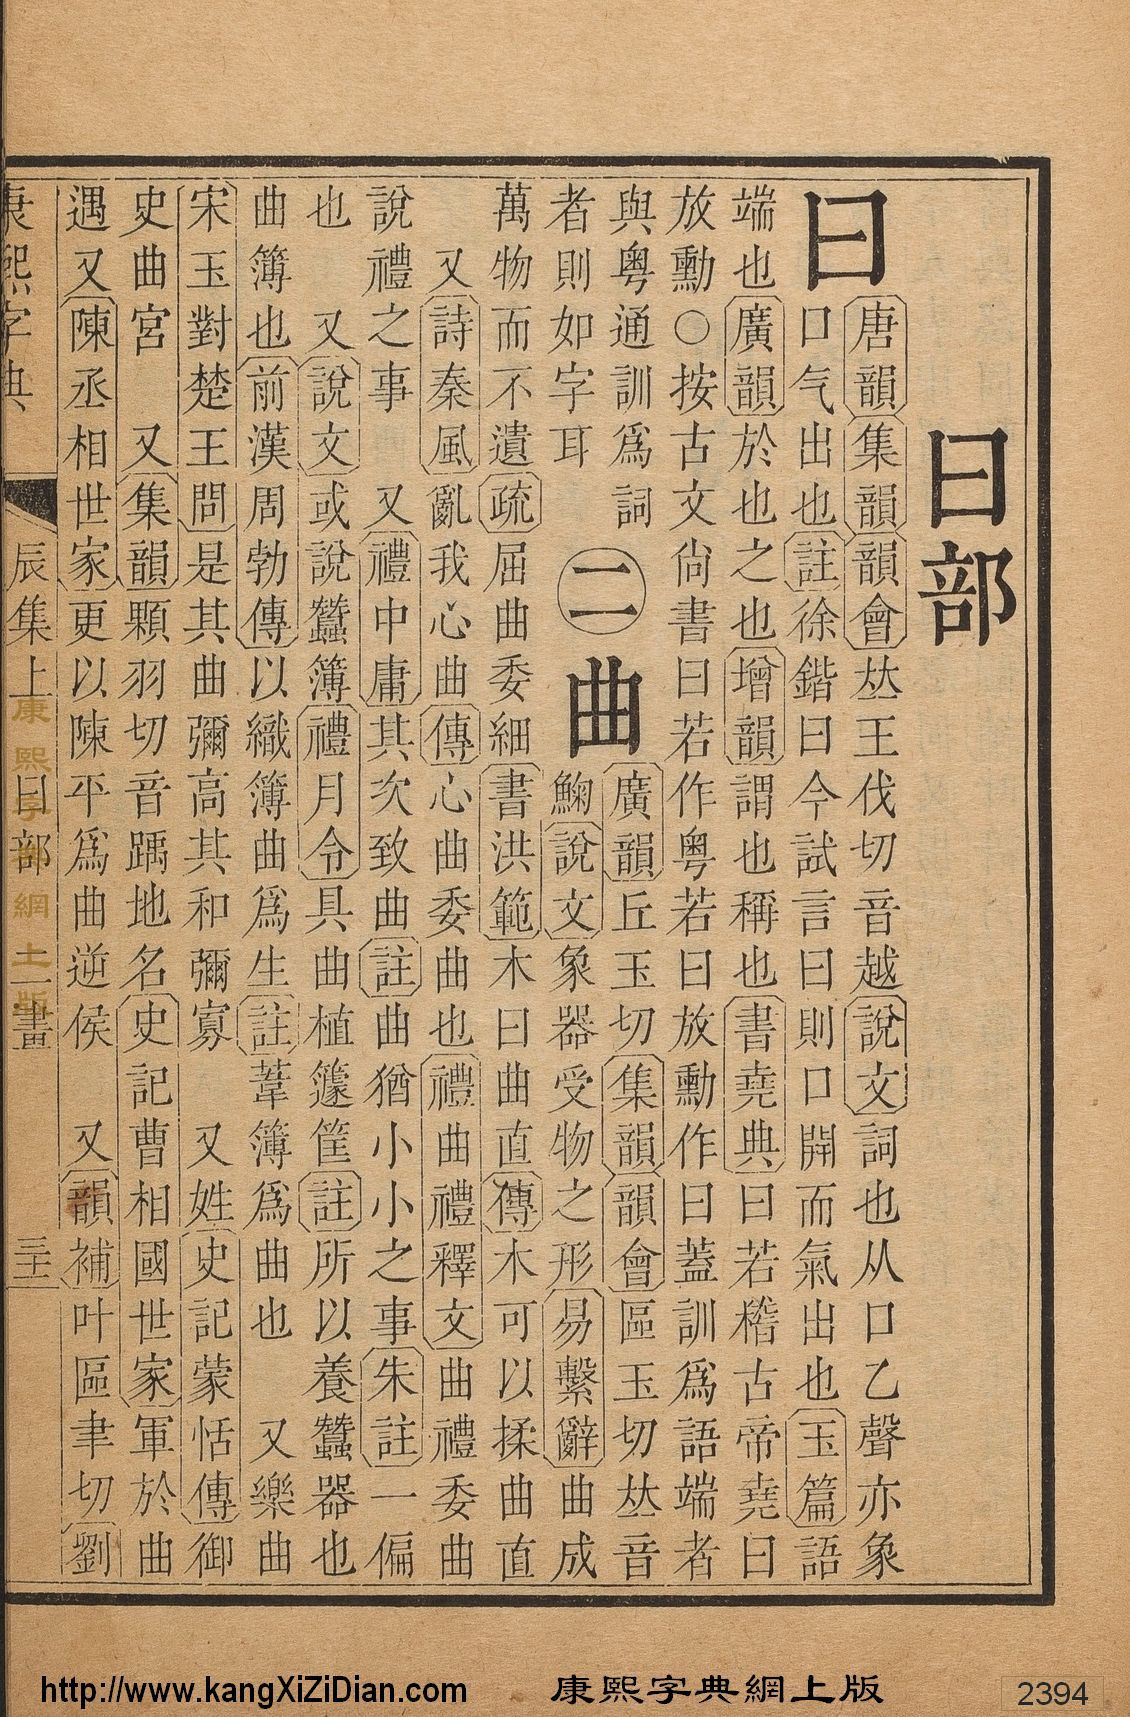 曰部
曰
唐韻集韻韻會𠀤王伐切音越說文詞也从口乙聲亦象
口气出也註徐鍇曰今試言曰則口開而氣出也玉篇語
端也廣韻於也之也增韻謂也稱也書堯典曰若稽古帝堯曰
放勳○按古文尙書曰若作粵若曰放勳作曰蓋訓爲語端者
與粵通訓爲詞
者則如字耳
二
曲
廣韻丘玉切集韻韻會區玉切𠀤音
鞠說文象器受物之形易繫辭曲成
萬物而不遺疏屈曲委細書洪範木曰曲直傳木可以揉曲直
又詩秦風亂我心曲傳心曲委曲也禮曲禮釋文曲禮委曲
說禮之事 又禮中庸其次致曲註曲猶小小之事朱註一偏
也 又說文或說蠶簿禮月令具曲植籧筐註所以養蠶器也
曲簿也前漢周勃傳以織簿曲爲生註葦簿爲曲也 又樂曲
宋玉對楚王問是其曲彌高其和彌寡 又姓史記蒙恬傳御
史曲宮 又集韻顆羽切音踽地名史記曹相國世家軍於曲
遇又陳丞相世家更以陳平爲曲逆侯 又韻補叶區聿切劉
康熙字典
辰集上
曰部
二畫
三十一
康熙字典網上版
http://www.kangXiZiDian.com
康熙字典網上版
2394